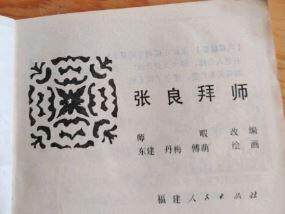 张良拜师
师 暇 改编
东建 丹梅 傅萌 绘画
福建人民出版社